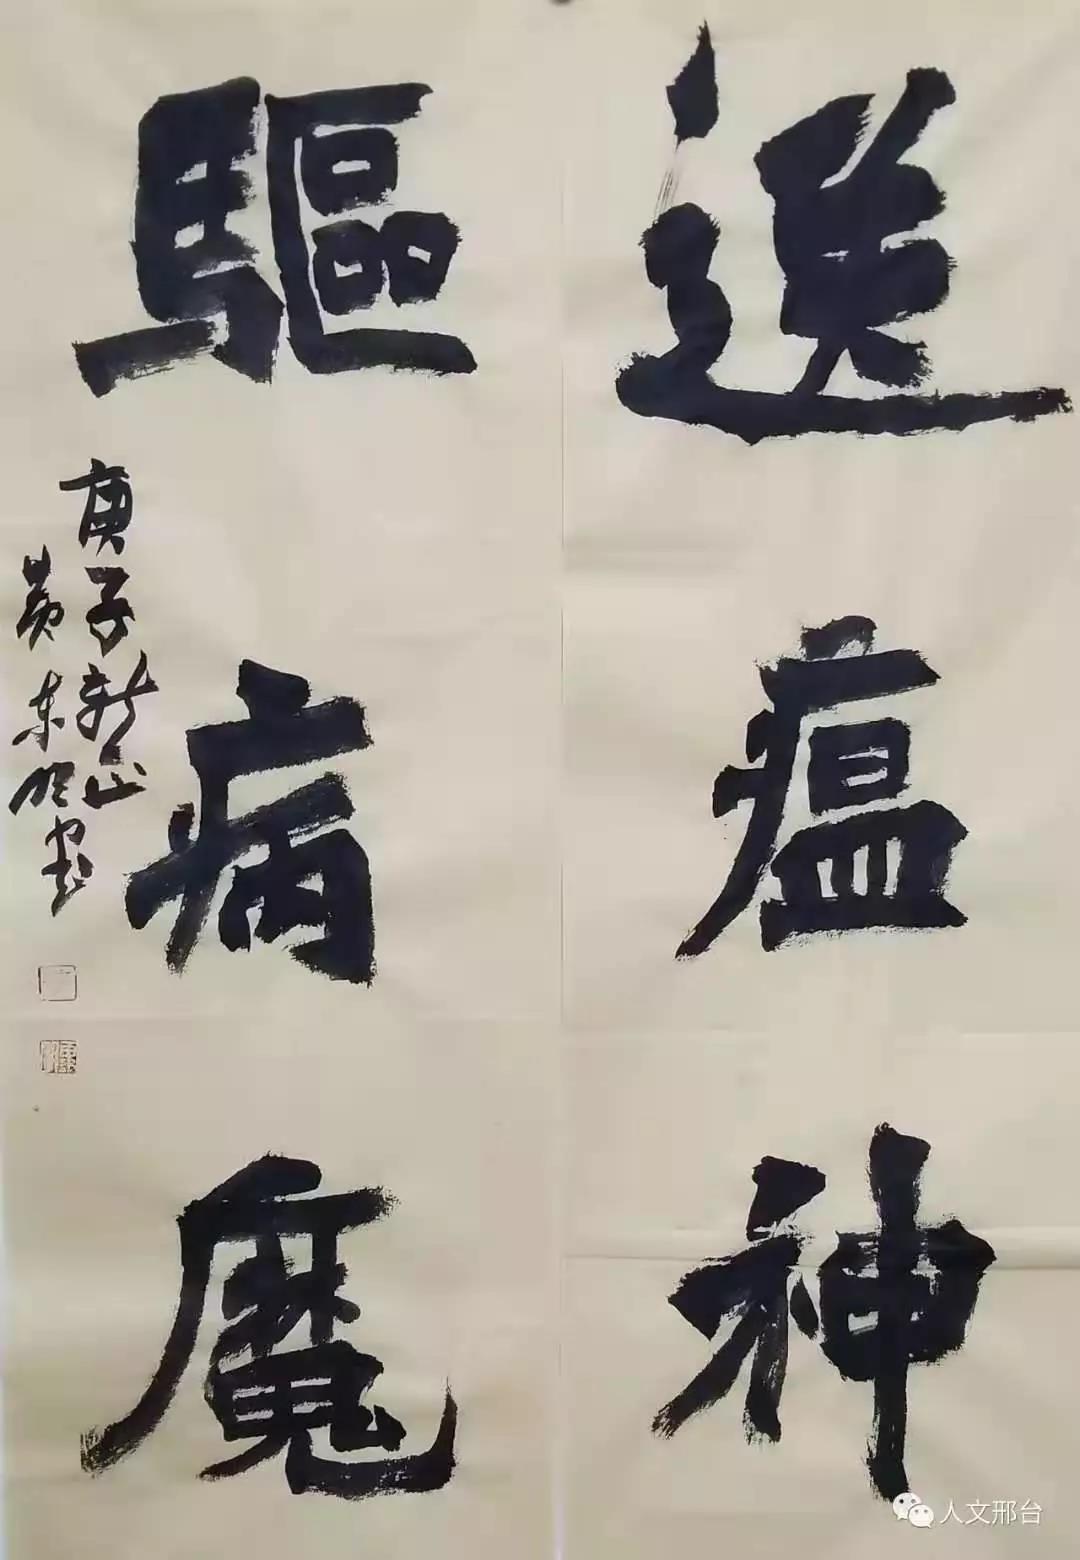 送瘟神
驅病魔
庚子新正
黄东明书
人文邢台